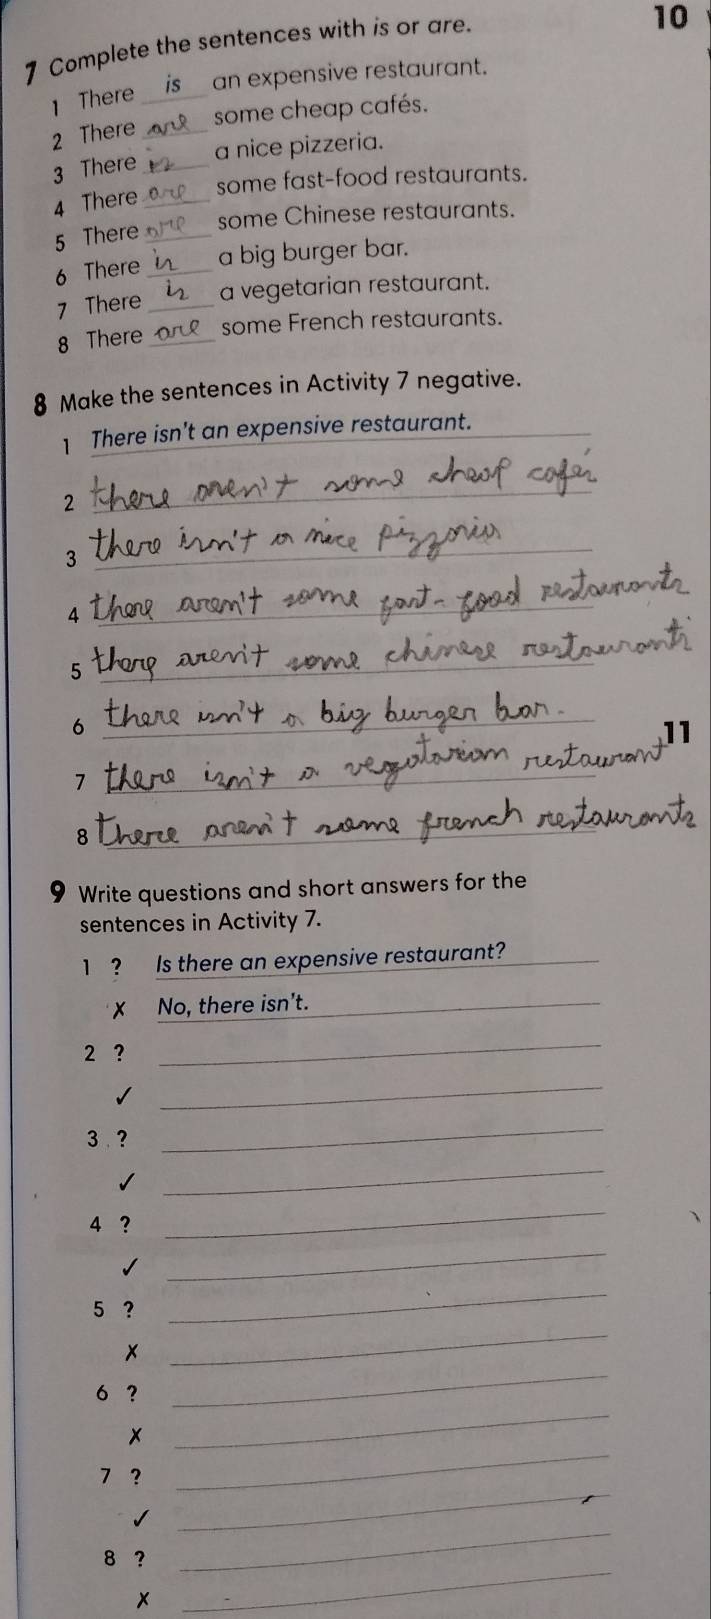 10
7 Complete the sentences with is or are.
1 There is an expensive restaurant.
2 There are some cheap cafés.
3 There is a nice pizzeria.
4 There are some fast-food restaurants.
5 There are some Chinese restaurants.
6 There is a big burger bar.
7 There is a vegetarian restaurant.
8 There are some French restaurants.
8 Make the sentences in Activity 7 negative.
1 There isn't an expensive restaurant.
2 there aren't some cheap cafes
3 there isn't a nice pizzoria
4 there aren't some fast-food restaurants
5 there aren't some chinese restauranti
6 there isn't a big burger bar.
11
7 there isn't a vegatariam restaurant
8 there aren't some french restaurants
9 Write questions and short answers for the
sentences in Activity 7.
1 ? Is there an expensive restaurant?
✗ No, there isn't.
2 ?
✓
3 ?
✓
4 ?
✓
5 ?
✗
6 ?
✗
7 ?
✓
8 ?
✗